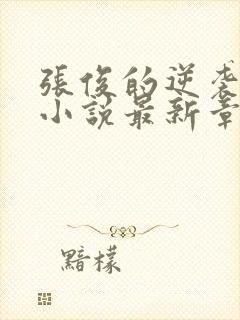 張俊的逆袭
小說最新章
黯檬